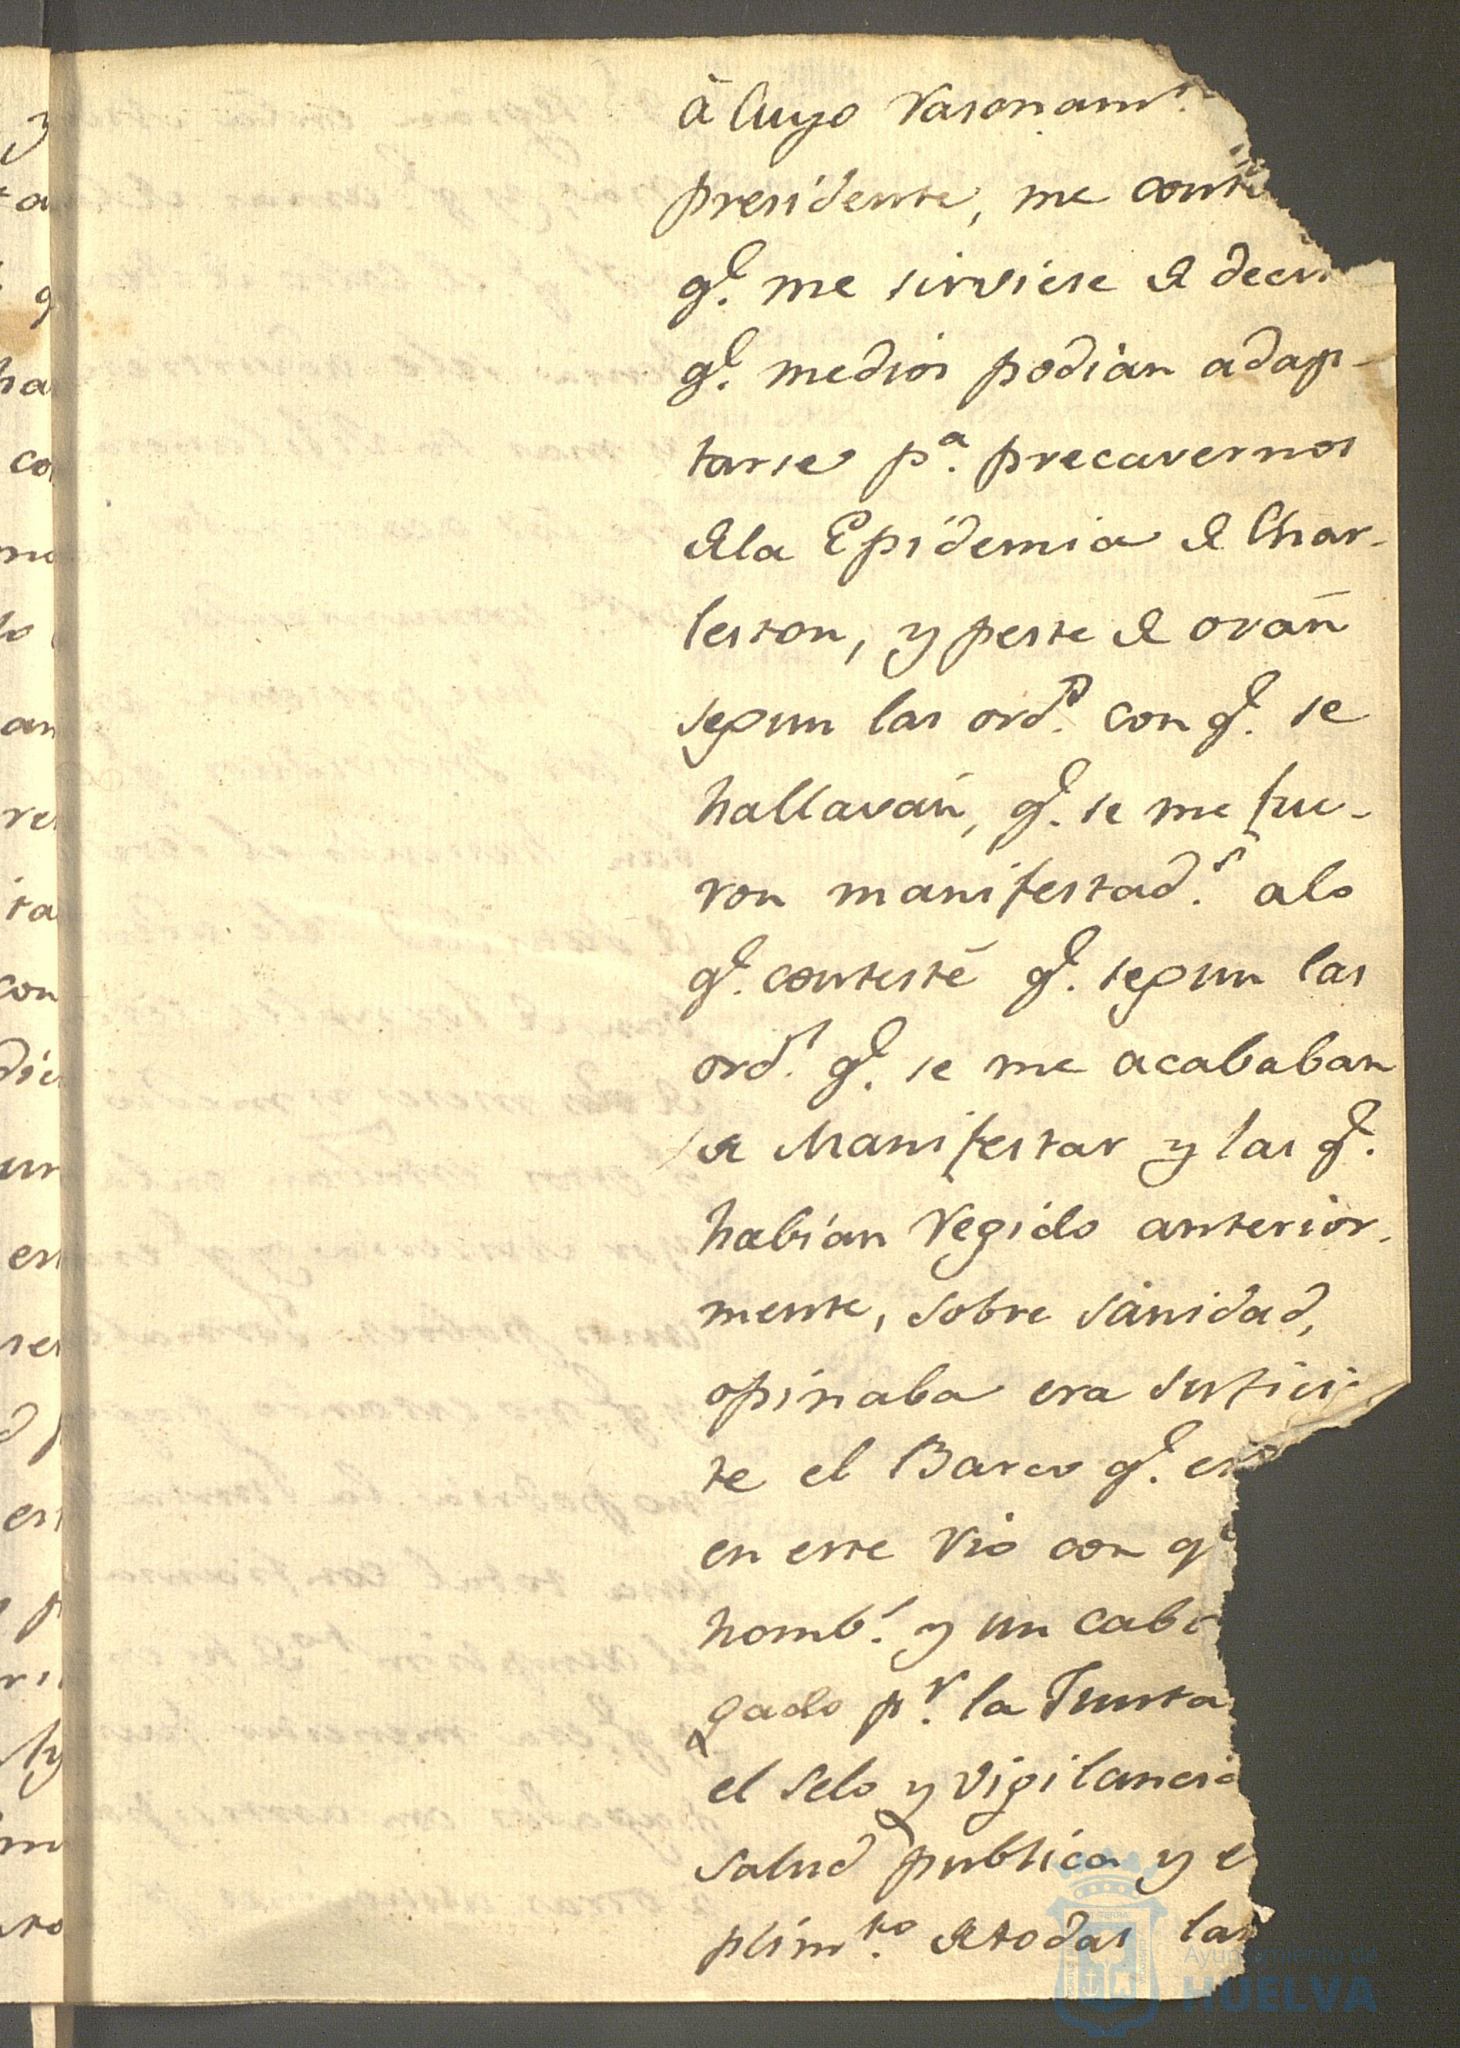 à Cuyo Rasonamto.
presidente, me conte
qe. me sirviese de decir
qe. medios podian adap-
tarse pa. precavernos
dela Epidemia de Char-
leston, y peste de orán
segun las ords. con qe. se
hallaván, qe. se me fue-
ron manifestads. alo
qe. contesté qe. segun las
ords. qe. se me acababan
de Manifestar y las qe.
habian Regido anterior-
mente, sobre sanidad,
opinaba era sufici
te el Barco qe. es
en este Rio con qe
hombs. y un cabo
gado pr. la Junta
el selo y vigilancia
salud publica y e
plimto. de todas las
Ayuntamiento de
HUELVA